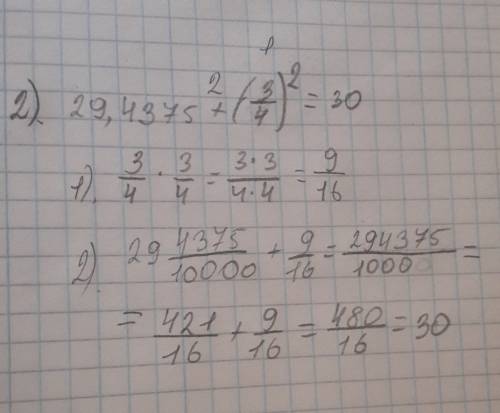 1
2). 29,4375 +² (3/4)² = 30
1). 3/4 · 3/4 = 3·3/4·4 = 9/16
2). 29 4375/10000 + 9/16 = 294375/1000 =
= 421/16 + 9/16 = 480/16 = 30